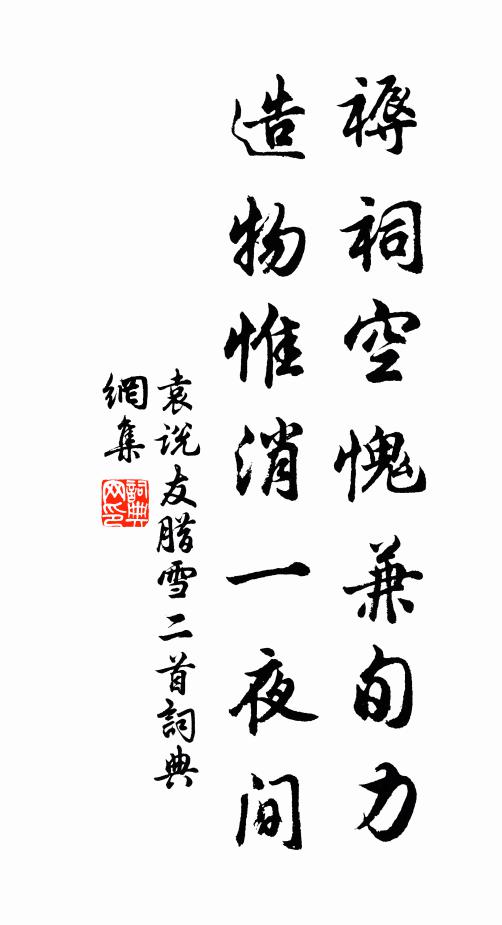 禱祠空愧兼旬力
造物惟消一夜間
袁説友腊雪二首詞典
網集
詞典網印